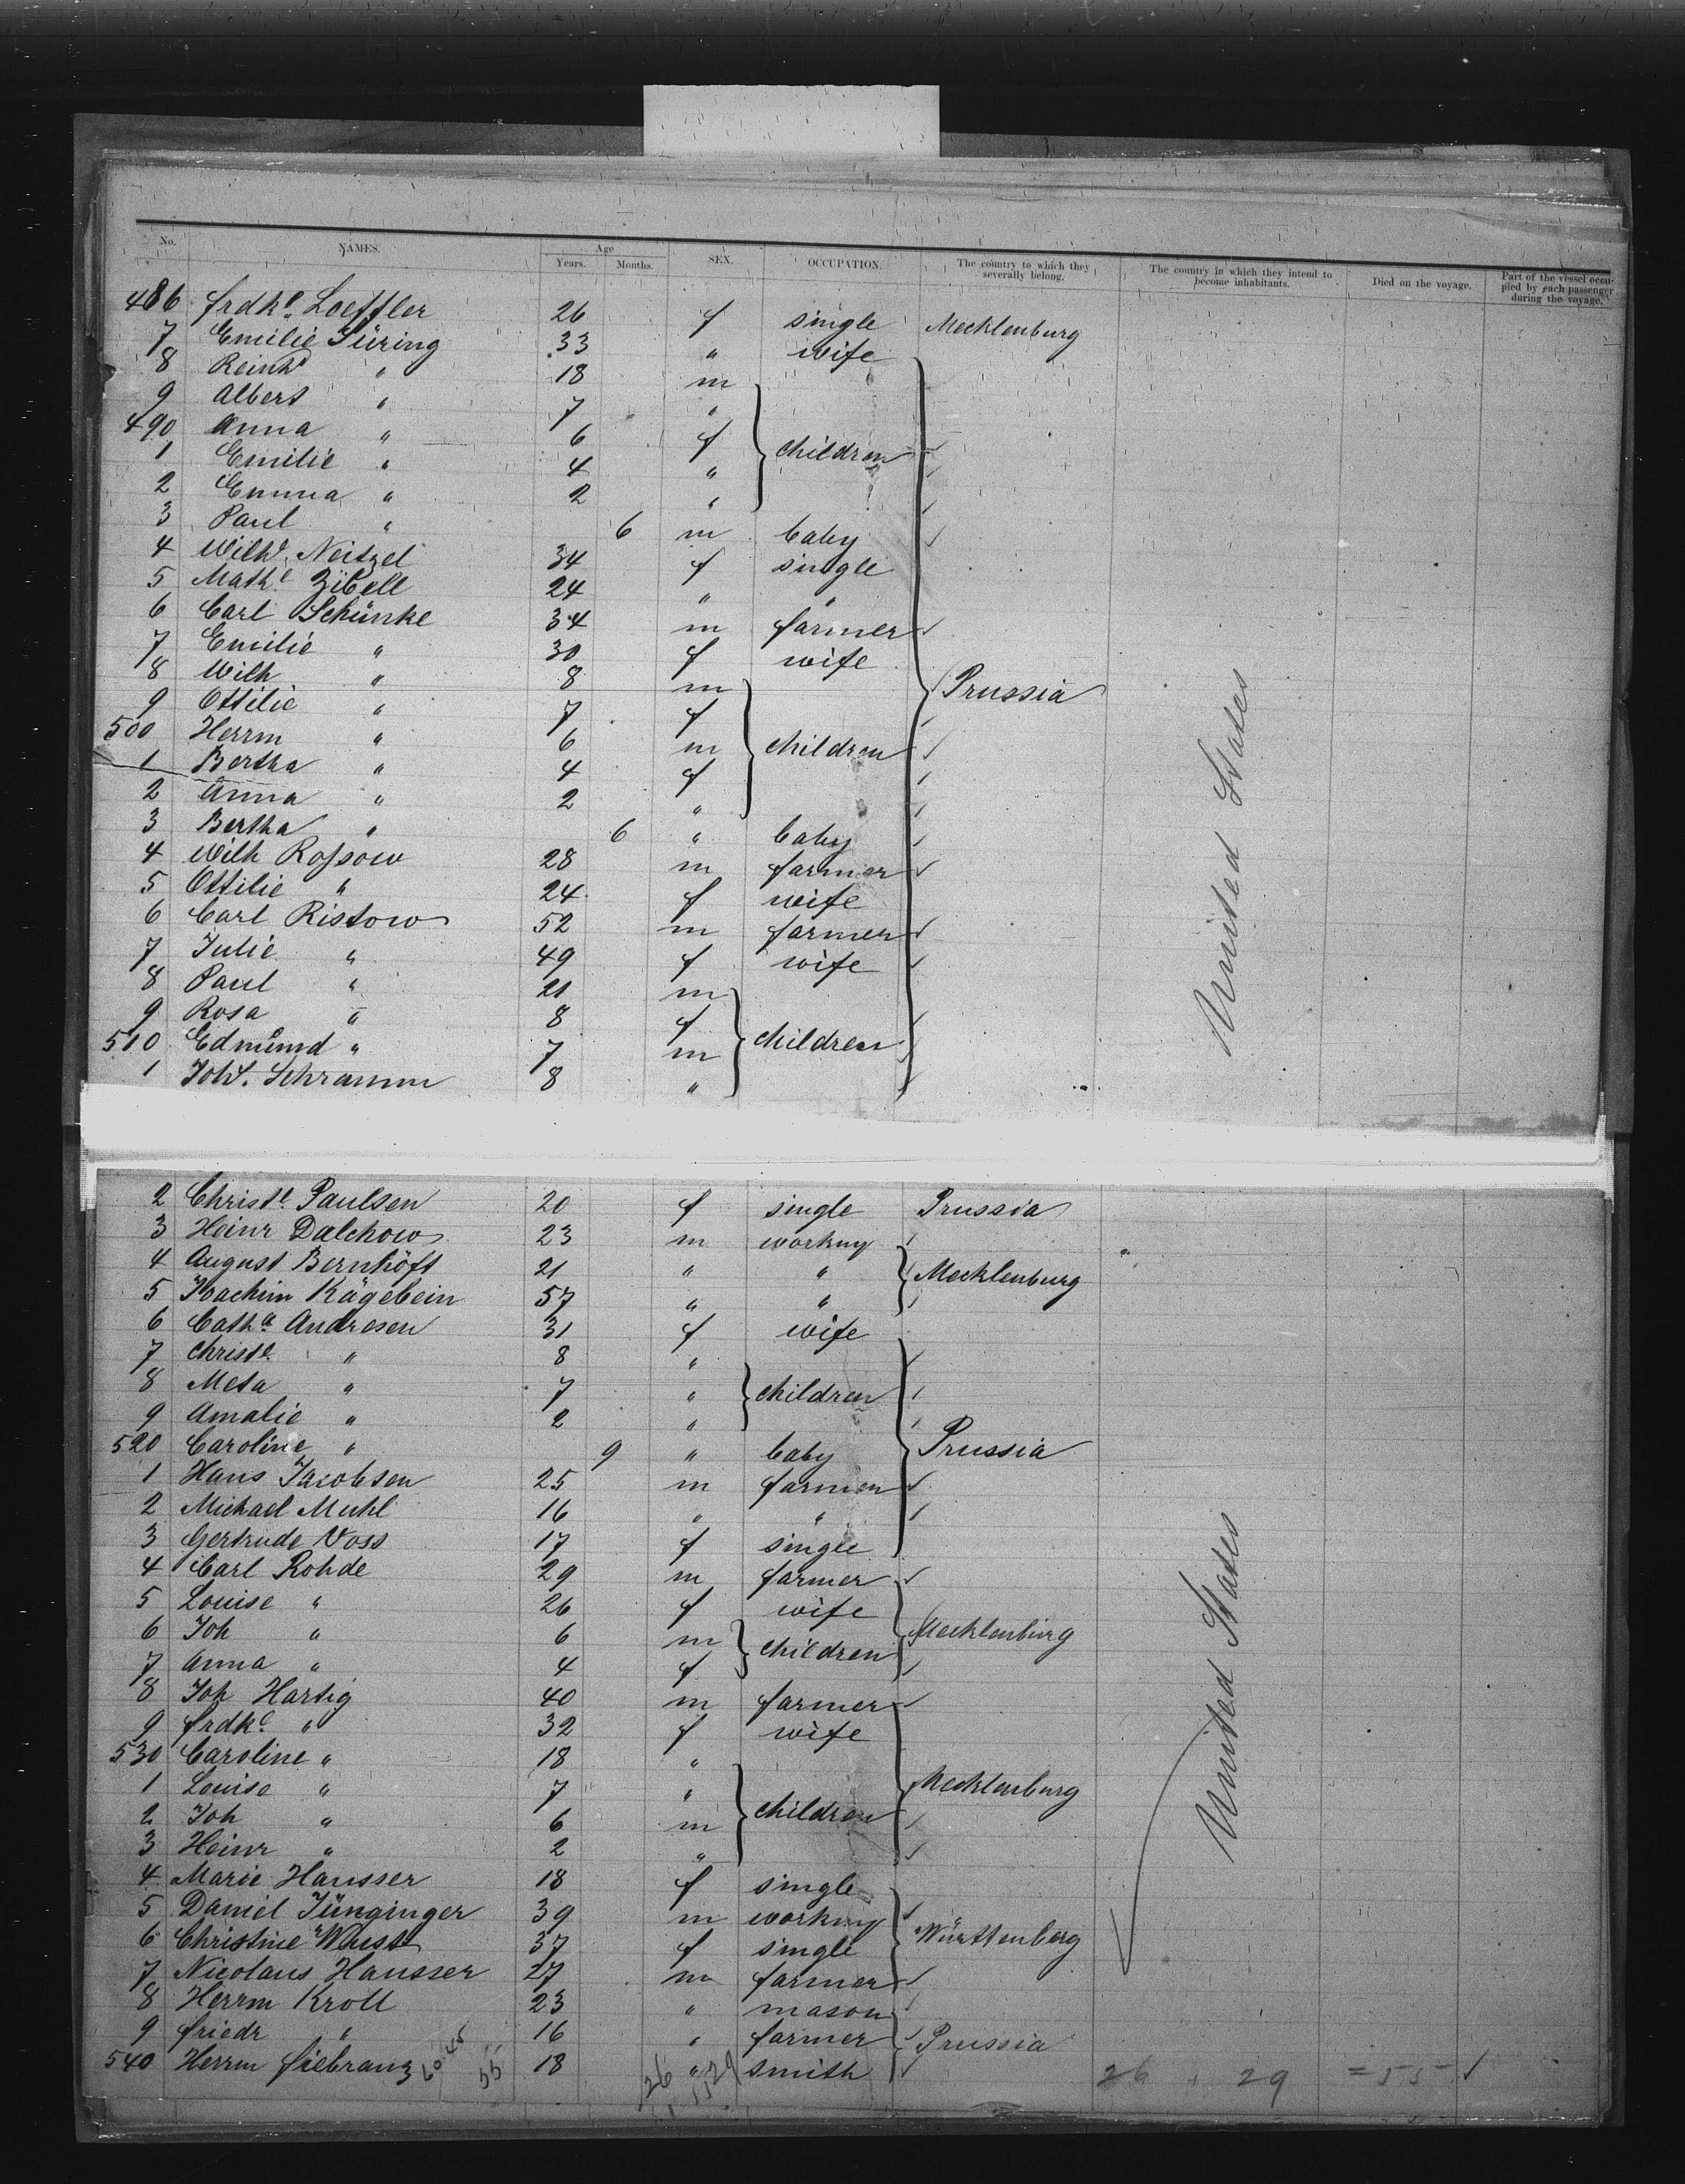 No. NAMES. Age Years. Months. SEX. OCCUPATION. The country to which they severally belong. The country in which they intend to become inhabitants. Died on the voyage. Part of the vessel occupied by each passenger during the voyage.
486 Frdke. Loeffler 26 f single Mecklenburg
7 Emilie Süring 33 " wife
8 Reinhd " 18 m
9 Albert " 7 "
490 Anna " 6 f children
1 Emilie " 4 "
2 Emma " 2 "
3 Paul " 6 m baby
4 Wilhe. Neitzel 34 f single
5 Mathe Zibell 24 " "
6 Carl Schünke 34 m farmer
7 Emilie " 30 f wife
8 Wilh " 8 m Prussia
9 Ottilie " 7 f
500 Herrm " 6 m children
1 Bertha " 4 f
2 Anna " 2 "
3 Bertha " 6 " baby
4 Wilh Rossow 28 m farmer
5 Ottilie " 24 f wife
6 Carl Ristow 52 m farmer
7 Julie " 49 f wife United States
8 Paul " 21 m
9 Rosa " 8 f
510 Edmund " 7 m children
1 Schramm 8 "
2 Christe. Paulsen 20 f single Prussia
3 Heinr Dalchow 23 m working
4 August Bernhöft 21 " " Mecklenburg
5 Joachim Kägebein 57 " "
6 Catha Andresen 31 f wife
7 Christe. " 8 "
8 Meta " 7 " children
9 Amalie " 2 "
520 Caroline " 9 " baby Prussia
1 Hans Jacobsen 25 m farmer
2 Michael Muhl 16 " "
3 Gertrude Voss 17 f single
4 Carl Rohde 29 m farmer
5 Louise " 26 f wife
6 Joh " 6 m children Mecklenburg
7 Anna " 4 f
8 Joh Hartig 40 m farmer
9 Frdke. " 32 f wife United States
530 Caroline " 18 "
1 Louise " 7 " Mecklenburg
2 Joh " 6 m children
3 Heinr " 2 "
4 Marie Hausser 18 f single
5 Daniel Jünginger 39 m working
6 Christine Wust 37 f single Württenberg
7 Nicolaus Hausser 27 m farmer
8 Herrm Kroll 23 " mason
9 Friedr " 16 " farmer Prussia
540 Herrm Fiebranz 18 " smith
26 29 = 55